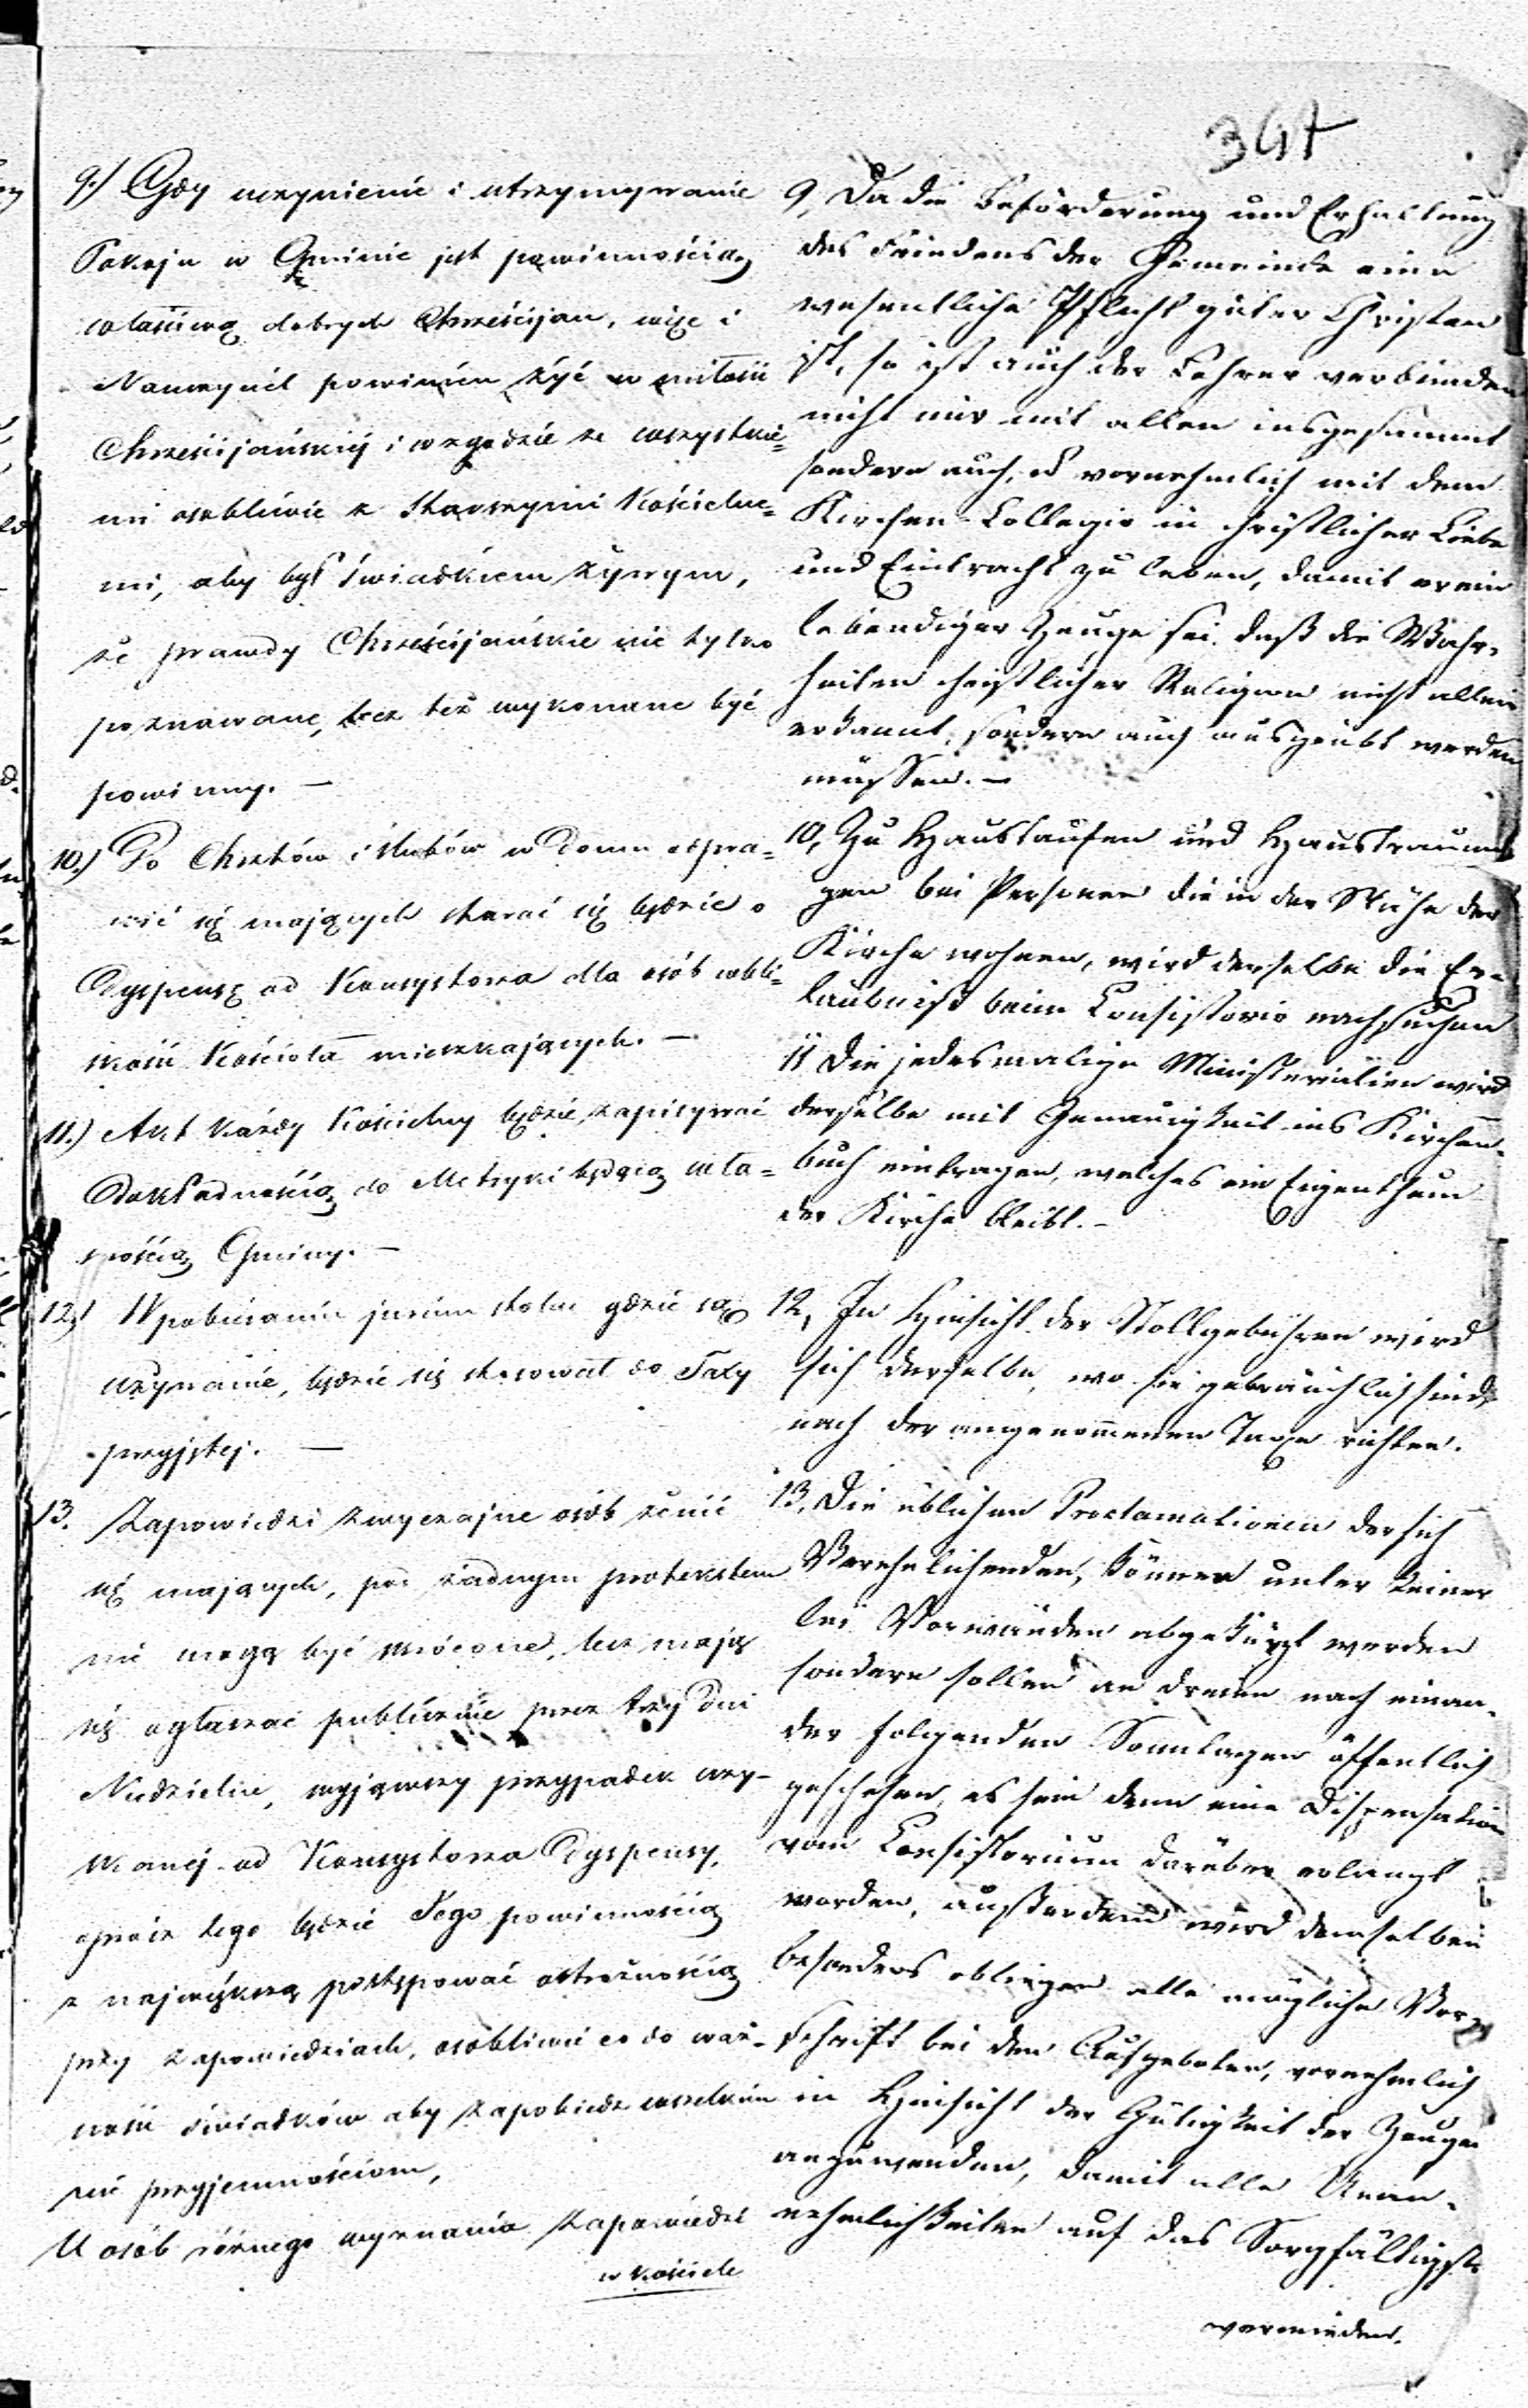 347
9.) Gdy uczynienie i utrzymywanie
Pokoju w Gminie jest powinnością
właściwą dobrych Chrześcijan, więc i
Nauczyciel powinien żyć w miłości
Chrześcijańskiéj i w zgodzie ze wszystkie=
mi osobliwie z Starszymi Kościelne=
mi, aby był świadkiem żywym,
że prawdy Chrześcijańskie nie tylko
poznawane, lecz też wykonane być
powinny. —
10.) Do Chrztów i ślubów w Domu odpra=
wić się mających starać się będzie o
Dyspensę od Konsystorza dla osób w bli=
skości Kościoła mieszkających. —
11.) Akt każdy Kościelny będzie zapisywać
Dokładnością do Metryki będącą wła=
snością Gminy. —
12.) W pobieraniu jurium stolae gdzie są
używanie, będzie się stosował do Taxy
przyjętej. —
13. Zapowiedzi zwyczajne osób żenić
się mających, pod żadnym pretekstem
nie mogą być skrócone, lecz mają
się ogłaszać publicznie przez trzy Dni
Niedzielne, wyjąwszy przypadek uzy-
skanéj od Konsystorza Dyspensy,
oprócz tego będzie Jego powinnością
z największą postępować ostrożnością
przy zapowiedziach, osobliwie co do waż-
ności świadków aby zapobiedz wszelkim
nie przyjemnościom,
U osób różnego wyznania Zapowiedzi
w kościele
9, Da die Beförderung und Erhaltung
des Friedens der Gemeinde eine
wesentliche Pflicht guter Christen
ist, so ist auch der Lehrer verbunden
nicht nur mit allen insgesammt
sondern auch, u vornehmlich mit dem
Kirchen-Collegio in christlicher Liebe
und Eintracht zu leben, damit er ein
lebendiger Zeuge sei, daß die Wahr-
heiten christlicher Religion nicht allein
erkannt, sondern auch ausgeübt werden
müssen. —
10, Zu Haustaufen und Haustraun
gen bei Personen die in der Nähe der
Kirche wohnen, wird derselbe die Er-
laubniß beim Consistorio nachsuchen
11 Die jedesmalige Ministerialien wird
derselbe mit Genauigkeit ins Kirchen-
buch eintragen, welches ein Eigenthum
der Kirche bleibt. —
12, In Hinsicht der Stollgebühren wird
sich derselbe, wo sie gebräuchlich sind,
nach der angenommenen Taxe richten.
13, Die üblichen Proclamationen der sich
Verehelichenden, können unter keiner
lei Vorwänden abgekürzt werden
sondern sollen an dreien nach einan-
der folgenden Sonntagen öffentlich
geschehen, es sein denn eine Dispensation
vom Consistorium darüber erlangt
worden, außerdem wird demselben
besonders obliegen alle mögliche Vor-
schrift bei den Aufgeboten, vornehmlich
in Hinsicht der Gültigkeit der Zeugen
anzuwenden, damit alle Unan-
nehmlichkeiten auf das Sorgfältigste
vermieden.